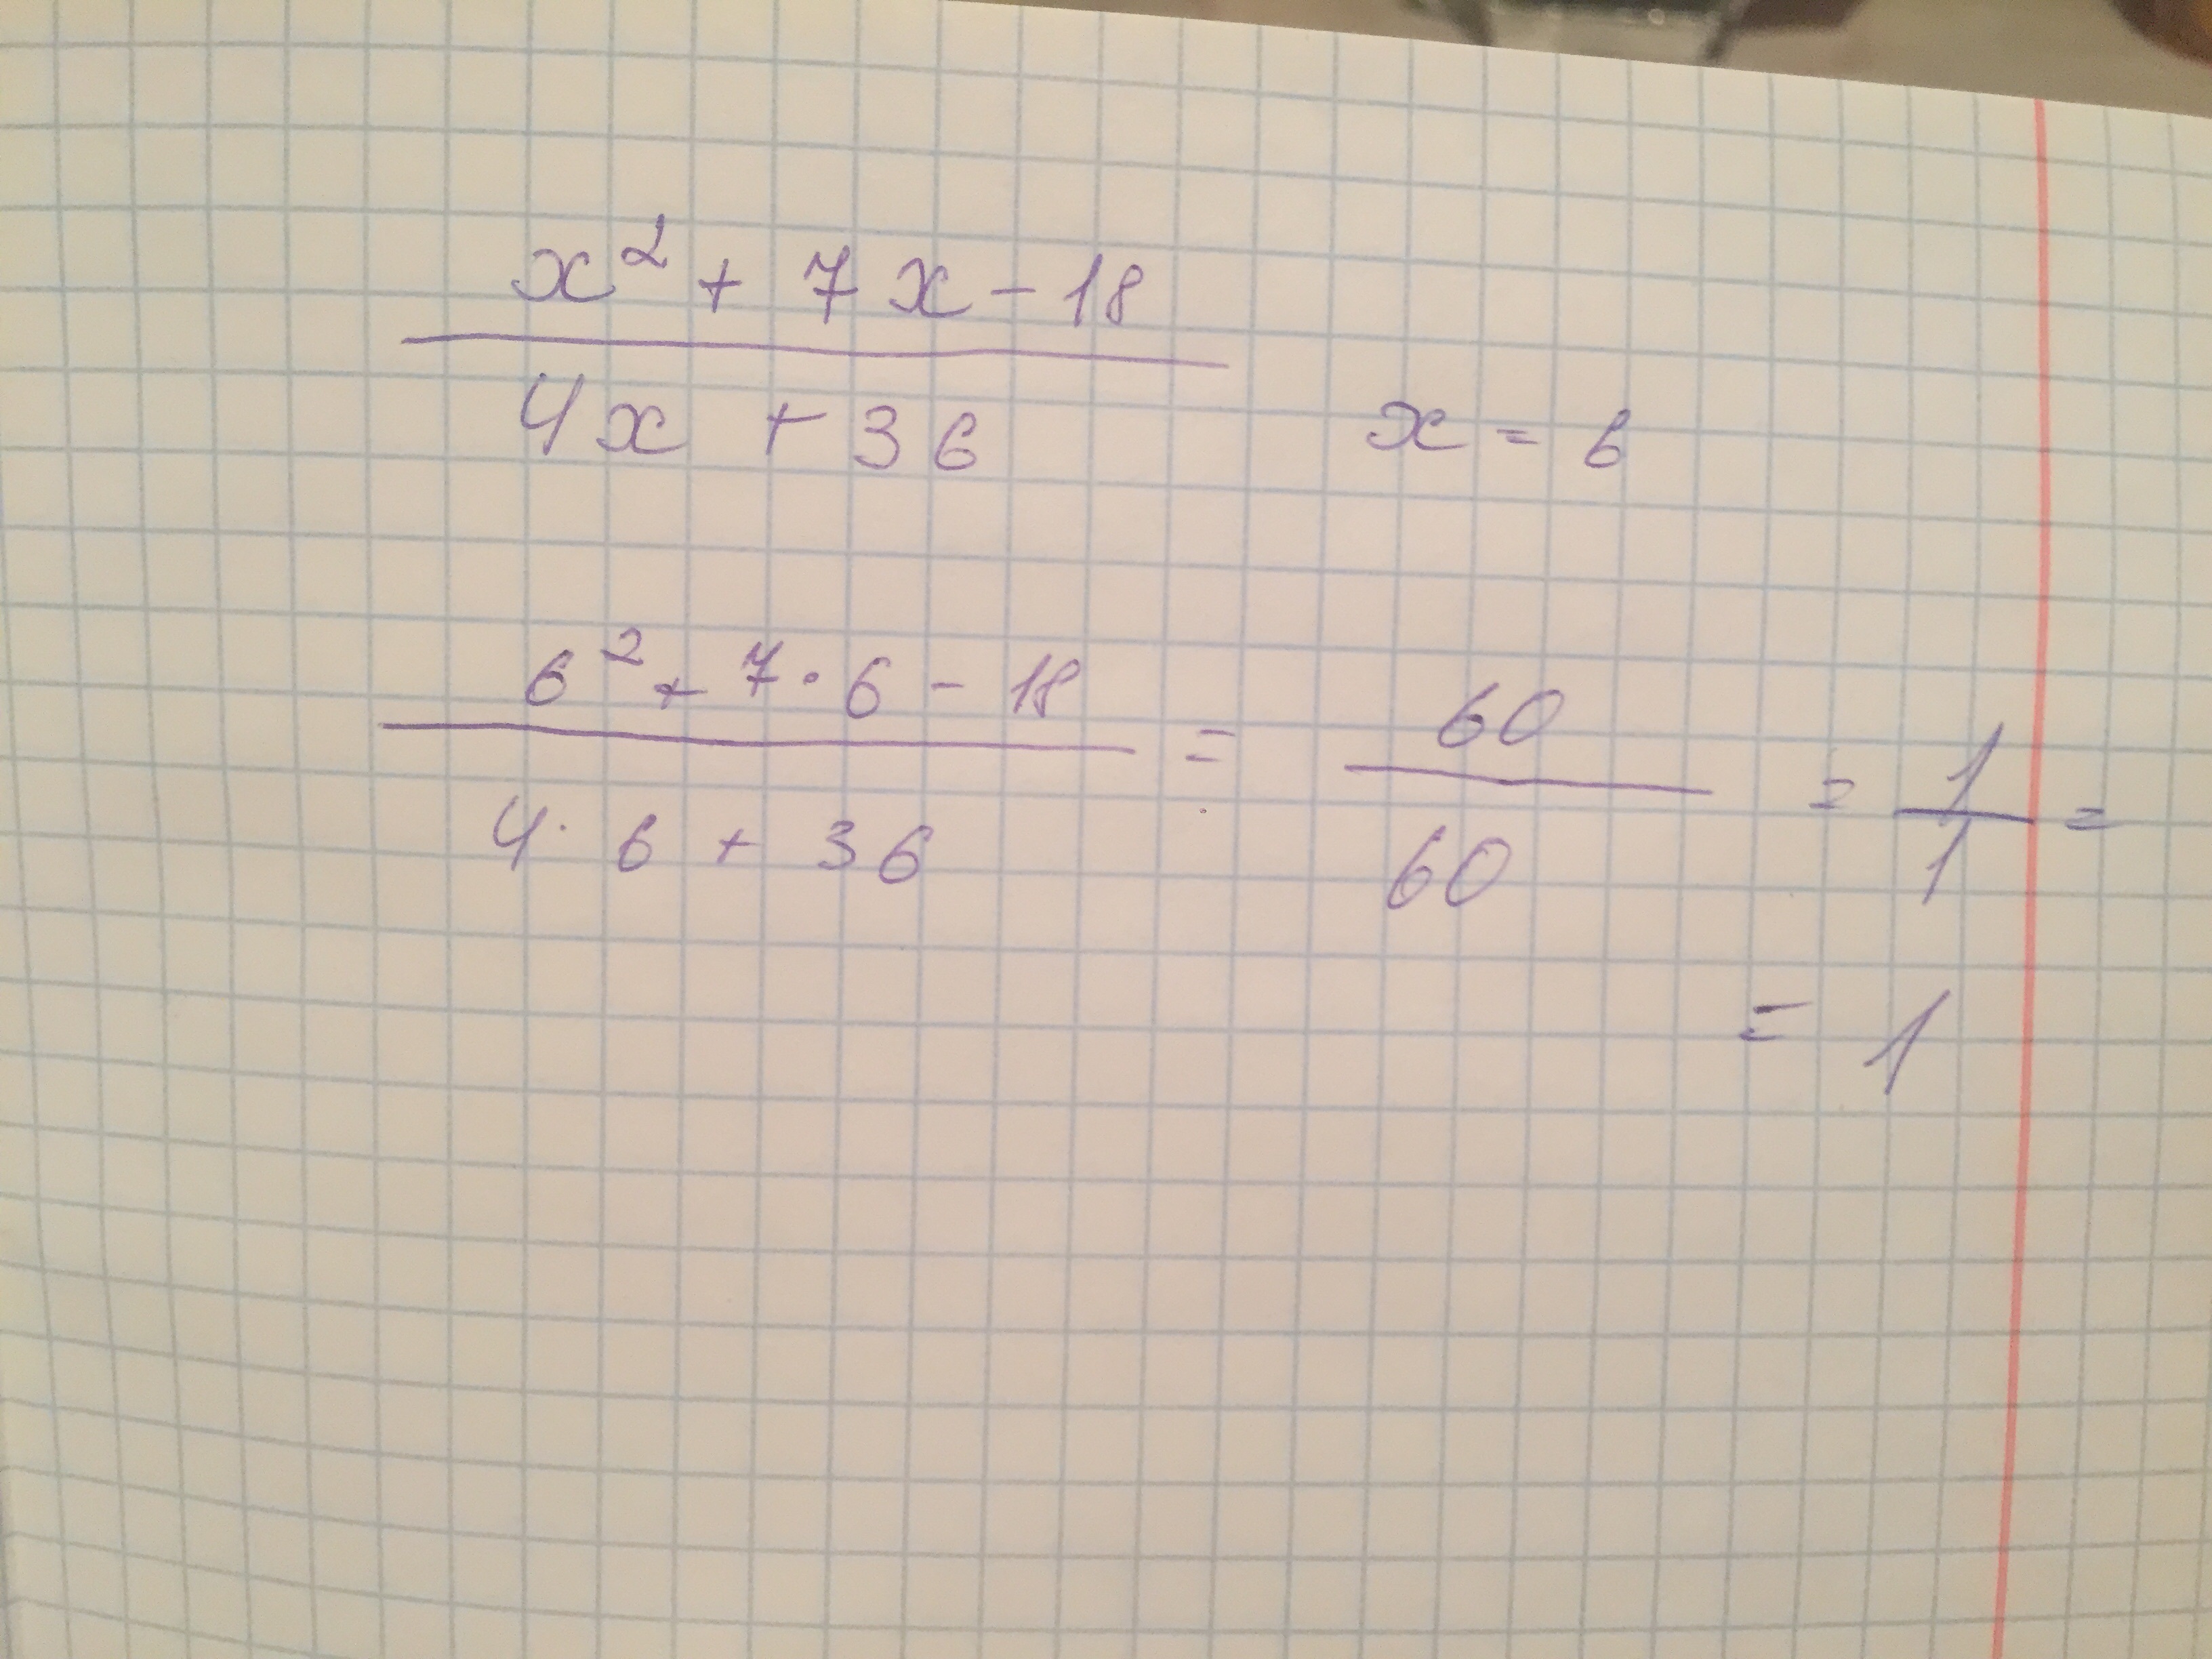 x² + 7x - 18
4x + 36
x = 6
6² + 7 · 6 - 18
4 · 6 + 36
=
60
60
=
1
1
=
= 1